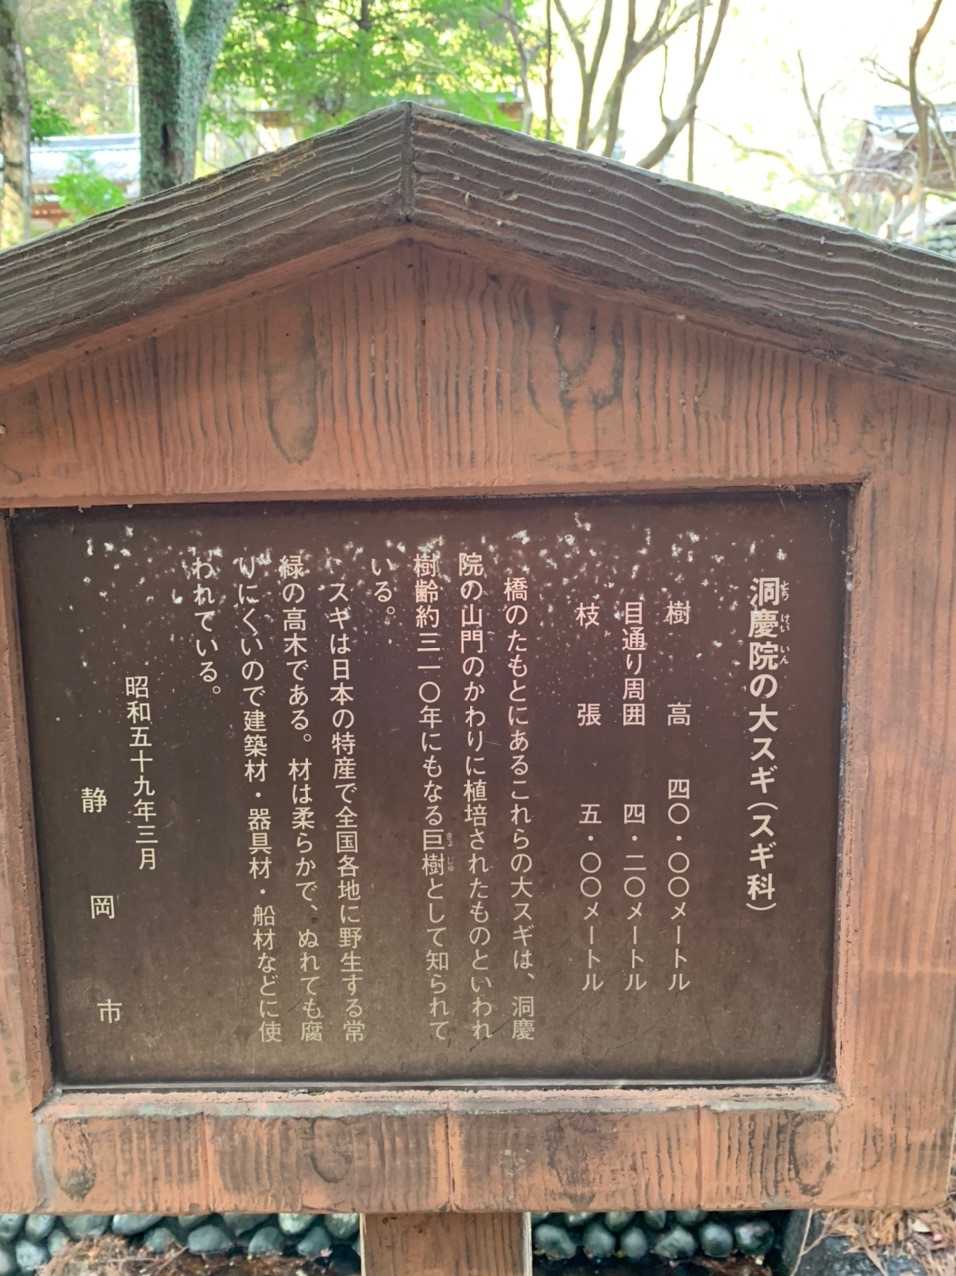 洞慶院の大スギ（スギ科）
とうけいいん
樹高 四〇・〇〇メートル
目通り周囲 四・二〇メートル
枝張 五・〇〇メートル
橋のたもとにあるこれらの大スギは、洞慶
院の山門のかわりに植培されたものといわれ
樹齢約三一〇年にもなる巨樹として知られて
きょじゅ
いる。
スギは日本の特産で全国各地に野生する常
緑の高木である。材は柔らかで、ぬれても腐
りにくいので建築材・器具材・船材などに使
われている。
昭和五十九年三月
静岡市